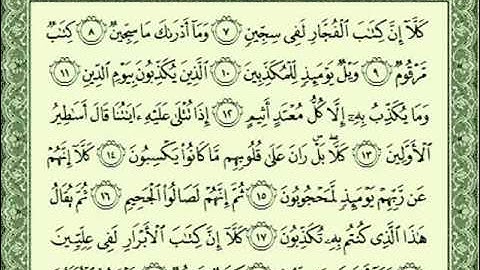 كَلَّآ إِنَّ كِتَـٰبَ ٱلْفُجَّارِ لَفِى سِجِّينٍ ٧ وَمَآ أَدْرَىٰكَ مَا سِجِّينٌ ٨ كِتَـٰبٌ
مَّرْقُومٌ ٩ وَيْلٌ يَوْمَئِذٍ لِّلْمُكَذِّبِينَ ١٠ ٱلَّذِينَ يُكَذِّبُونَ بِيَوْمِ ٱلدِّينِ ١١
وَمَا يُكَذِّبُ بِهِۦٓ إِلَّا كُلُّ مُعْتَدٍ أَثِيمٍ ١٢ إِذَا تُتْلَىٰ عَلَيْهِ ءَايَـٰتُنَا قَالَ أَسَـٰطِيرُ
ٱلْأَوَّلِينَ ١٣ كَلَّا ۖ بَلْ ۜ رَانَ عَلَىٰ قُلُوبِهِم مَّا كَانُوا۟ يَكْسِبُونَ ١٤ كَلَّآ إِنَّهُمْ
عَن رَّبِّهِمْ يَوْمَئِذٍ لَّمَحْجُوبُونَ ١٥ ثُمَّ إِنَّهُمْ لَصَالُوا۟ ٱلْجَحِيمِ ١٦ ثُمَّ يُقَالُ
هَـٰذَا ٱلَّذِى كُنتُم بِهِۦ تُكَذِّبُونَ ١٧ كَلَّآ إِنَّ كِتَـٰبَ ٱلْأَبْرَارِ لَفِى عِلِّيِّينَ